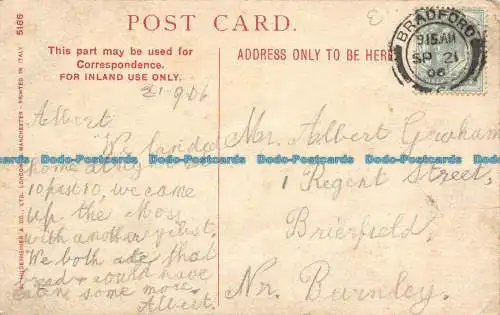 POST CARD.
This part may be used for
Correspondence.
FOR INLAND USE ONLY.
ADDRESS ONLY TO BE HERE
BRADFORD
9.15 AM
SP 21
06
5186
HILDESHEIMER & CO., LTD. LONDON & MANCHESTER - PRINTED IN ITALY
21 9 06
Albert
We landed
home at
10 past 10, we came
up the Moss
with another cyclist.
We both ate that
bread & could have
eaten some more.
Albert.
Mr. Albert Graham
1 Regent Street,
Brierfield,
Nr. Burnley.
Dodo-Postcards Dodo-Postcards Dodo-Postcards Dodo-Postcards
Dodo-Postcards Dodo-Postcards Dodo-Postcards Dodo-Postcards